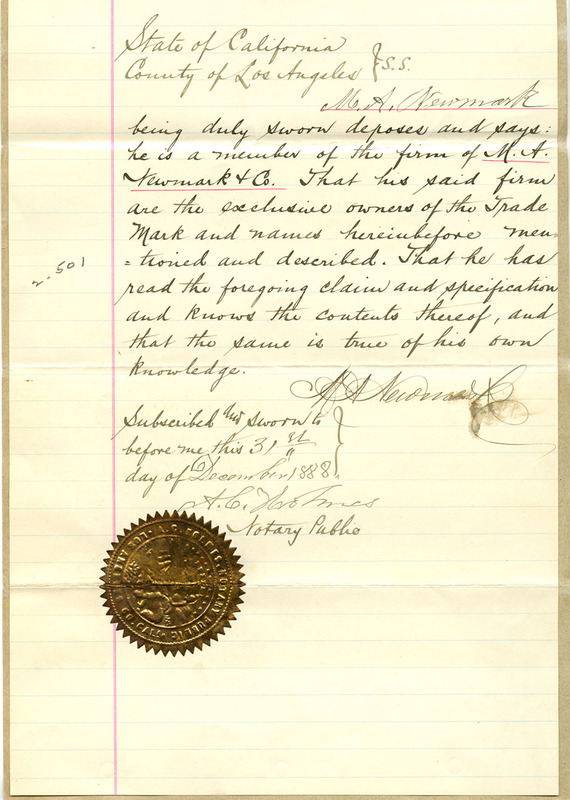 State of California
County of Los Angeles } S.S.
M. A. Newmark
being duly sworn deposes and says:
he is a member of the firm of M. A.
Newmark & Co. That his said firm
are the exclusive owners of the Trade
Mark and names hereinbefore men-
=tioned and described. That he has
read the foregoing claim and specification
and knows the contents thereof, and
that the same is true of his own
knowledge.
2-501
M A Newmark
Subscribed and sworn to
before me this 31st
day of December 1888.
A. C. Holmes
Notary Public
NOTARY PUBLIC